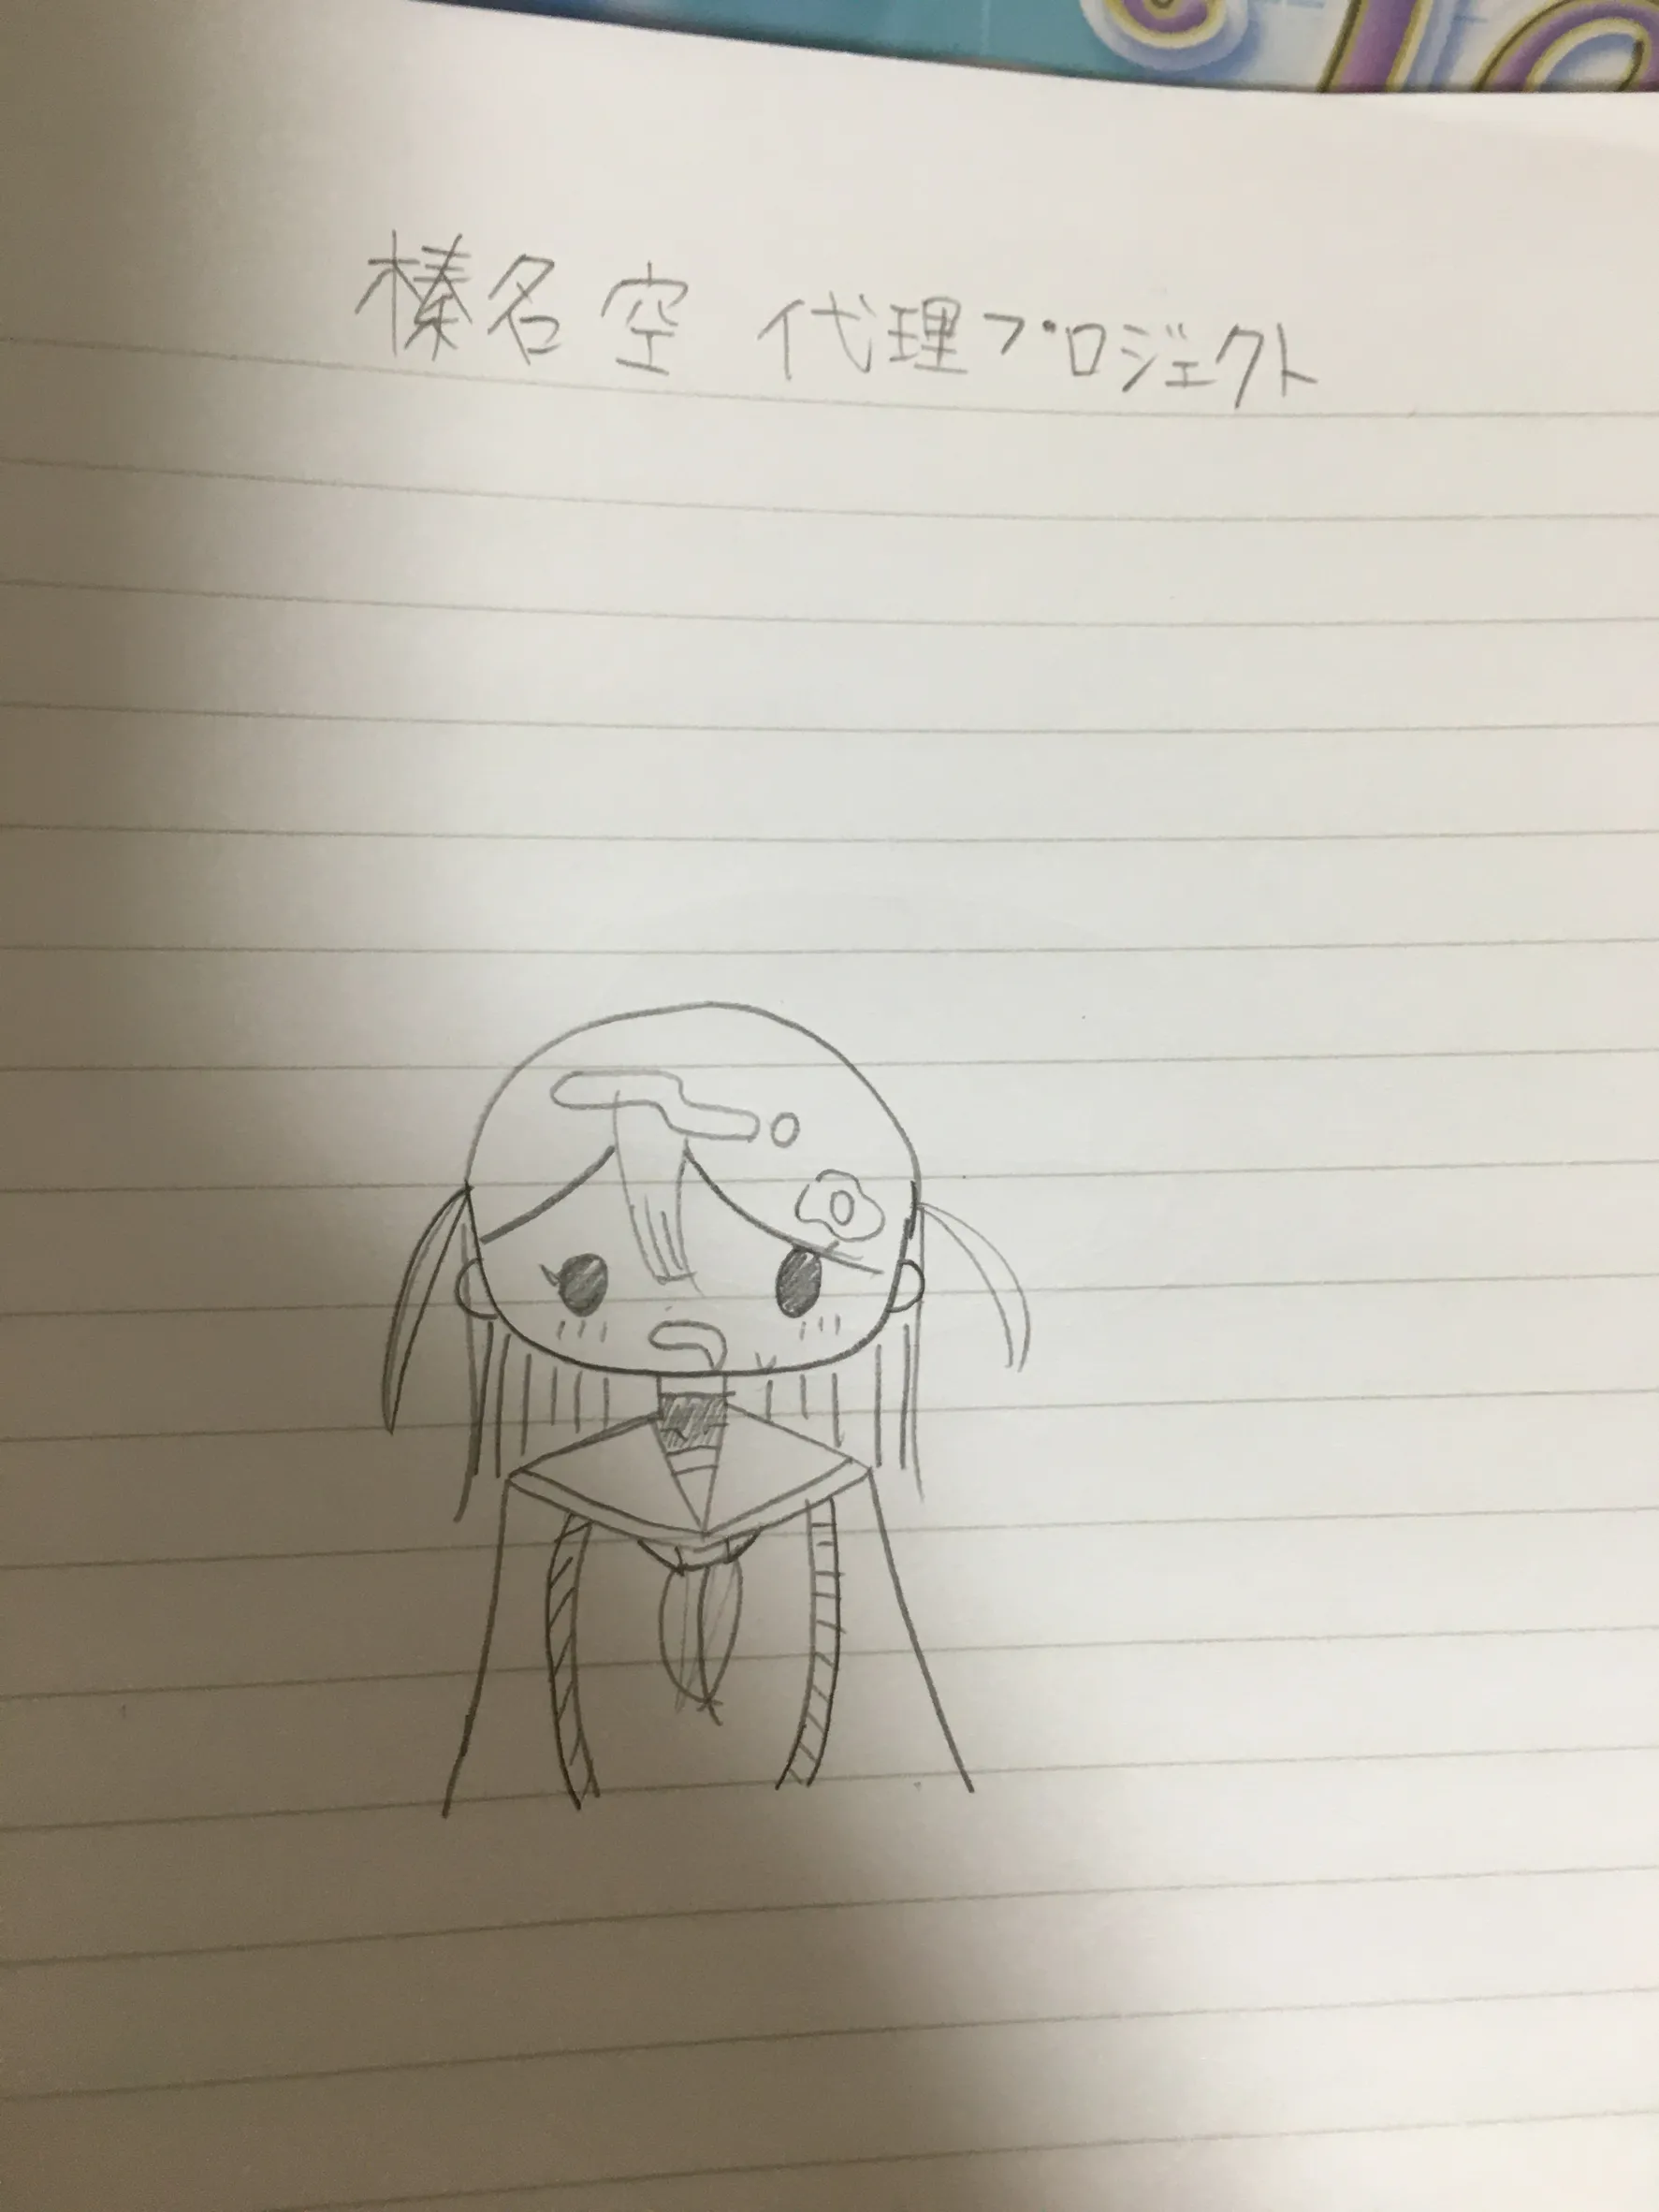 榛名空 代理プロジェクト